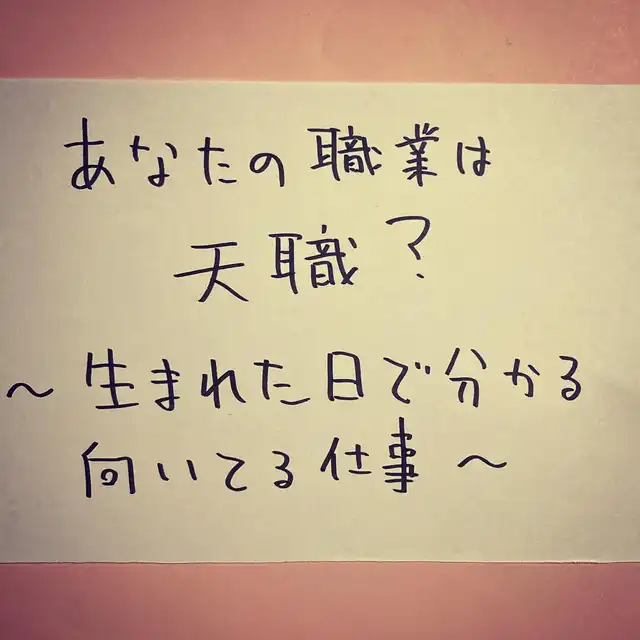 あなたの職業は
天職?
～生まれた日で分かる
向いてる仕事～